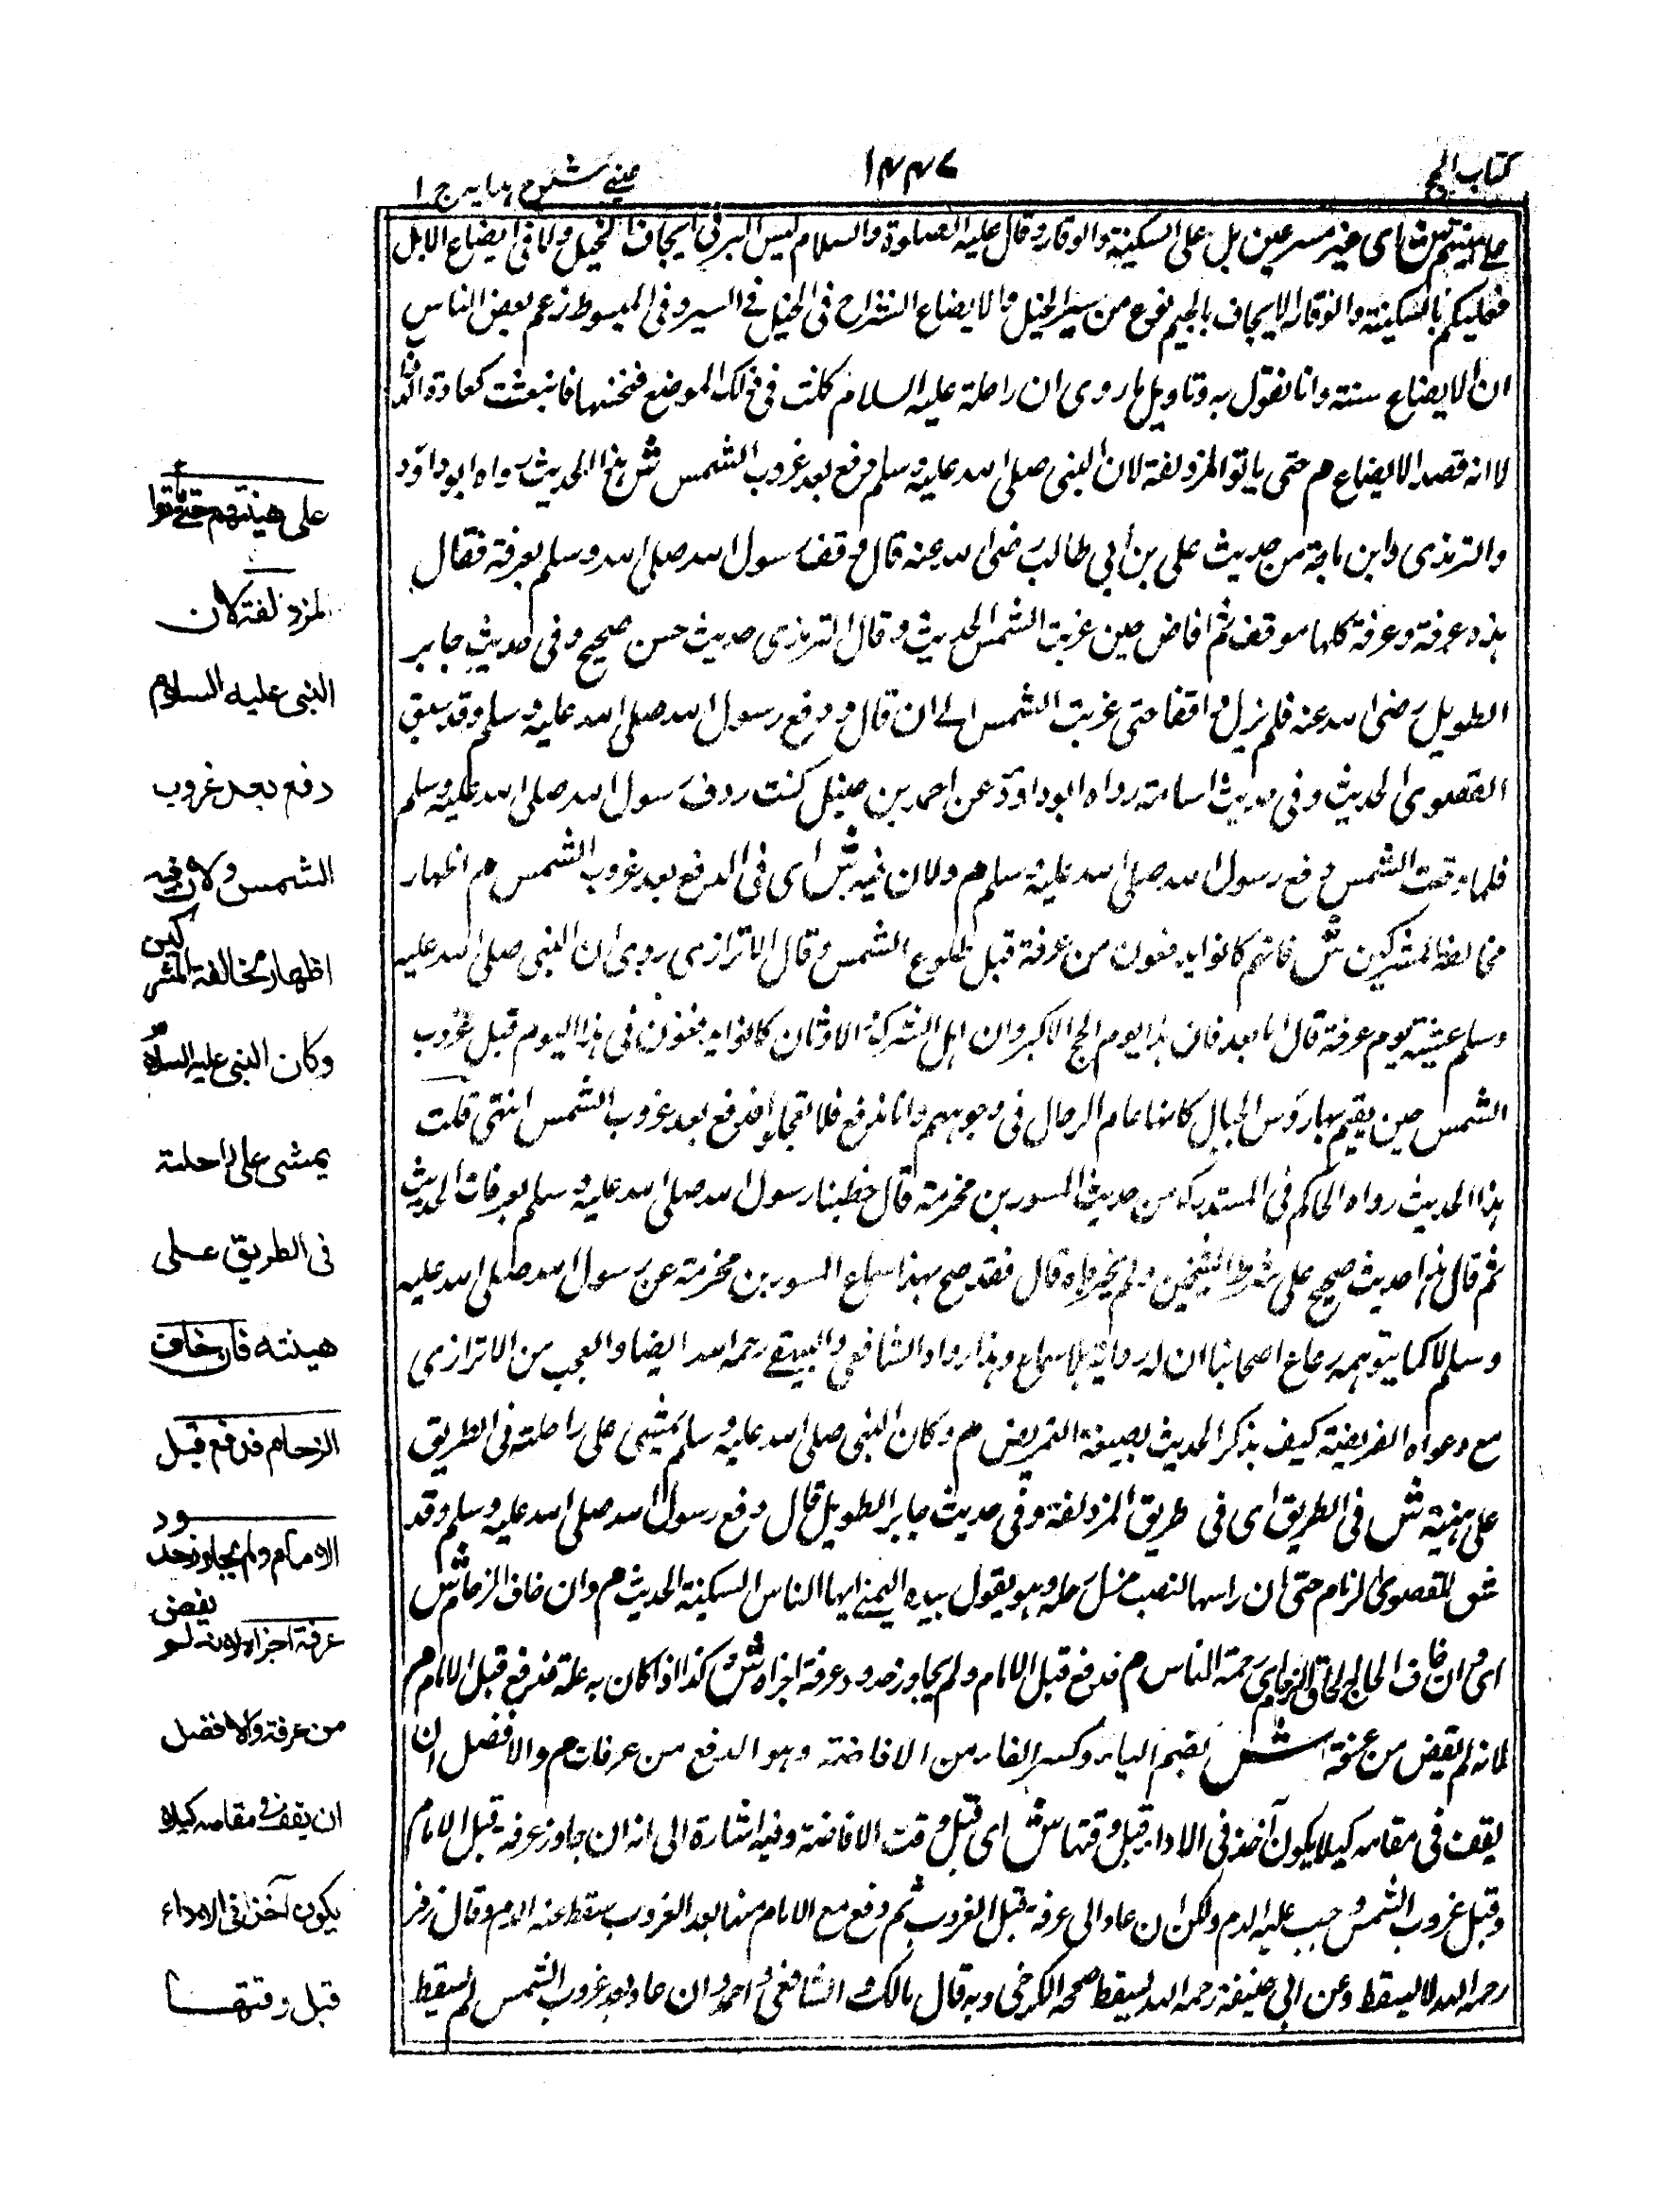 كتاب الحج
١٤٤٧
عيني شرح هدايه ج ١
على هينتهم ش اى غير مسرعين بل على السكينة والوقار وقال عليه الصلوة والسلام ليس البر فى ايجاف الخيل ولا فى ايضاع الابل
فعليكم بالسكينة والوقار الايجاف بالجيم نوع من سير الخيل والايضاع فى الخيل فى السير وفى المبسوط زعم بعض الناس
ان الايضاع سنة وانا نقول به وتاويل ما روى ان راحلة عليه السلام كلت فى ذلك الموضع فنخسها فانبعثت كعادة الدواب
لا انه قصد الايضاع م حتى ياتوا المزدلفة لان النبى صلى الله عليه وسلم دفع بعد غروب الشمس ش هذا الحديث رواه ابو داود
والترمذى وابن ماجة من حديث على بن أبي طالب رضى الله عنه قال وقف رسول الله صلى الله وسلم بعرفة فقال
هذه عرفة وعرفة كلها موقف ثم افاض حين غربت الشمس الحديث وقال الترمذى حديث حسن صحيح وفى حديث جابر
الطويل رضى الله عنه فلم يزل واقفا حتى غربت الشمس الى ان قال ودفع رسول الله صلى الله عليه وسلم وقد سبق
القصوى الحديث وفى حديث اسامة رواه ابو داود عن احمد بن حنبل كنت ردف رسول الله صلى الله عليه وسلم
فلما وقعت الشمس دفع رسول الله صلى الله عليه وسلم م ولان فيه ش اى فى الدفع بعد غروب الشمس م اظهار
مخالفة المشركين ش فانهم كانوا يدفعون من عرفة قبل طلوع الشمس وقال الاترازى روى ان النبى صلى الله عليه
وسلم عشية يوم عرفة قال اما بعد فان هذا يوم الحج الاكبر وان اهل الشرك والاوثان كانوا يدفعون فى هذا اليوم قبل غروب
الشمس حين يقيم بها رؤس الجبال كانها عمائم الرجال فى وجوههم وانا ندفع فلا تعجلوا فدفع بعد غروب الشمس انتهى قلت
هذا الحديث رواه الحاكم فى المستدرك من حديث المسور بن مخرمة قال خطبنا رسول الله صلى الله عليه وسلم بعرفات الحديث
ثم قال هذا حديث صحيح على شرط الشيخين ولم يخرجاه قال فقد صح بهذا سماع المسور بن مخرمة عن رسول الله صلى الله عليه
وسلم لا كما يتوهمه رعاع اصحابنا ان له رواية بلا سماع وهذا رواه الشافعى والبيهقى رحمه الله ايضا والعجب من الاترازى
مع دعواه العريضة كيف يذكر الحديث بصيغة التمريض م وكان النبى صلى الله عليه وسلم يمشى على راحلته فى الطريق
على هينته ش فى الطريق اى فى طريق المزدلفة وفى حديث جابر الطويل قال دفع رسول الله صلى الله عليه وسلم وقد
شنق للقصوى الزمام حتى ان راسها لتصيب رحله وهو يقول بيده اليمنى ايها الناس السكينة الحديث م وان خاف الزحام ش
اى وان خاف الحاج لحاق الزحام اى زحمة الناس م فدفع قبل الامام ولم يجاوز حدود عرفة اجزاه ش وكذا اذا كان به علة فدفع قبل الامام م
لانه لم يفض من عرفة ش بضم الياء وكسر الفاء من الافاضة وهو الدفع من عرفات م والافضل ان
يقف فى مقامه كيلا يكون آخذا فى الاداء قبل وقتها ش اى قبل وقت الافاضة وفيه اشارة الى انه ان جاوز عرفة قبل الامام
وقبل غروب الشمس وجب عليه الدم ولكن ان عاد الى عرفة قبل الغروب ثم دفع مع الامام منها بعد الغروب سقط عنه الدم وقال زفر
رحمه الله لا يسقط وعن ابى حنيفة رحمه الله يسقط صححه الكرخى وبه قال مالك والشافعى واحمد وان عاد بعد غروب الشمس لم يسقط
على هينتهم حتى يأتوا
المزدلفة لان
النبى عليه السلام
دفع بعد غروب
الشمس ولان فيه
اظهار مخالفة المشركين
وكان النبى عليه السلام
يمشى على راحلته
فى الطريق على
هينته فان خاف
الزحام فدفع قبل
الامام ولم يجاوز حدود
عرفة اجزاه لانه لم يفض
من عرفة والافضل
ان يقف فى مقامه كيلا
يكون آخذا فى الاداء
قبل وقتها